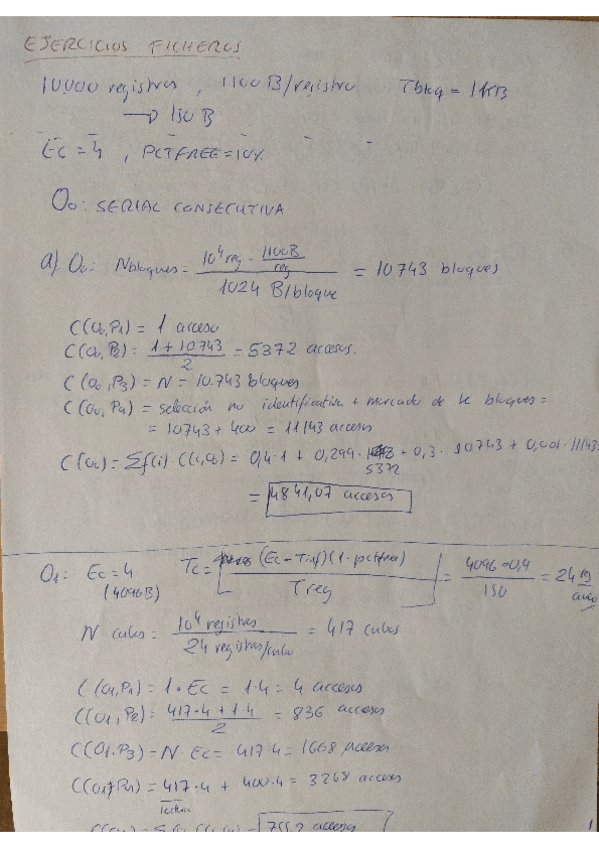 EJERCICIOS FICHEROS
10.000 registros, 1100 B/registro Tbloq = 1KB
→ 150 B
Ec = 4, PCTFREE = 10%
O₀: SERIAL CONSECUTIVA
a) O₀: Nbloques = (10⁴ reg · 1100B/reg) / (1024 B/bloque) = 10743 bloques
C(O₀,P₁) = 1 acceso
C(O₀,P₂) = (1 + 10743) / 2 = 5372 accesos.
C(O₀,P₃) = N = 10.743 bloques
C(O₀,P₄) = selección no identificativa + marcado de k bloques =
= 10743 + 400 = 11143 accesos
C(O₀) = Σf(i)·C(i,O₀) = 0,4·1 + 0,299· 5372 + 0,3· 10743 + 0,001·11143
= 4841,07 accesos
O₁: Ec = 4 Tc = ⌊(Ec − Tinf)(1 - pctfree) / Treg⌋ = 4096·0,9 / 150 = 24 reg
(4096B)
N cubos = 10⁴ registros / 24 registros/cubo = 417 cubos
C(O₁,P₁) = 1·Ec = 1·4 = 4 accesos
C(O₁,P₂) = (417·4 + 1·4) / 2 = 836 accesos
C(O₁,P₃) = N·Ec = 417·4 = 1668 accesos
C(O₁,P₄) = 417·4 + 400·4 = 3268 accesos
755,2 accesos
1